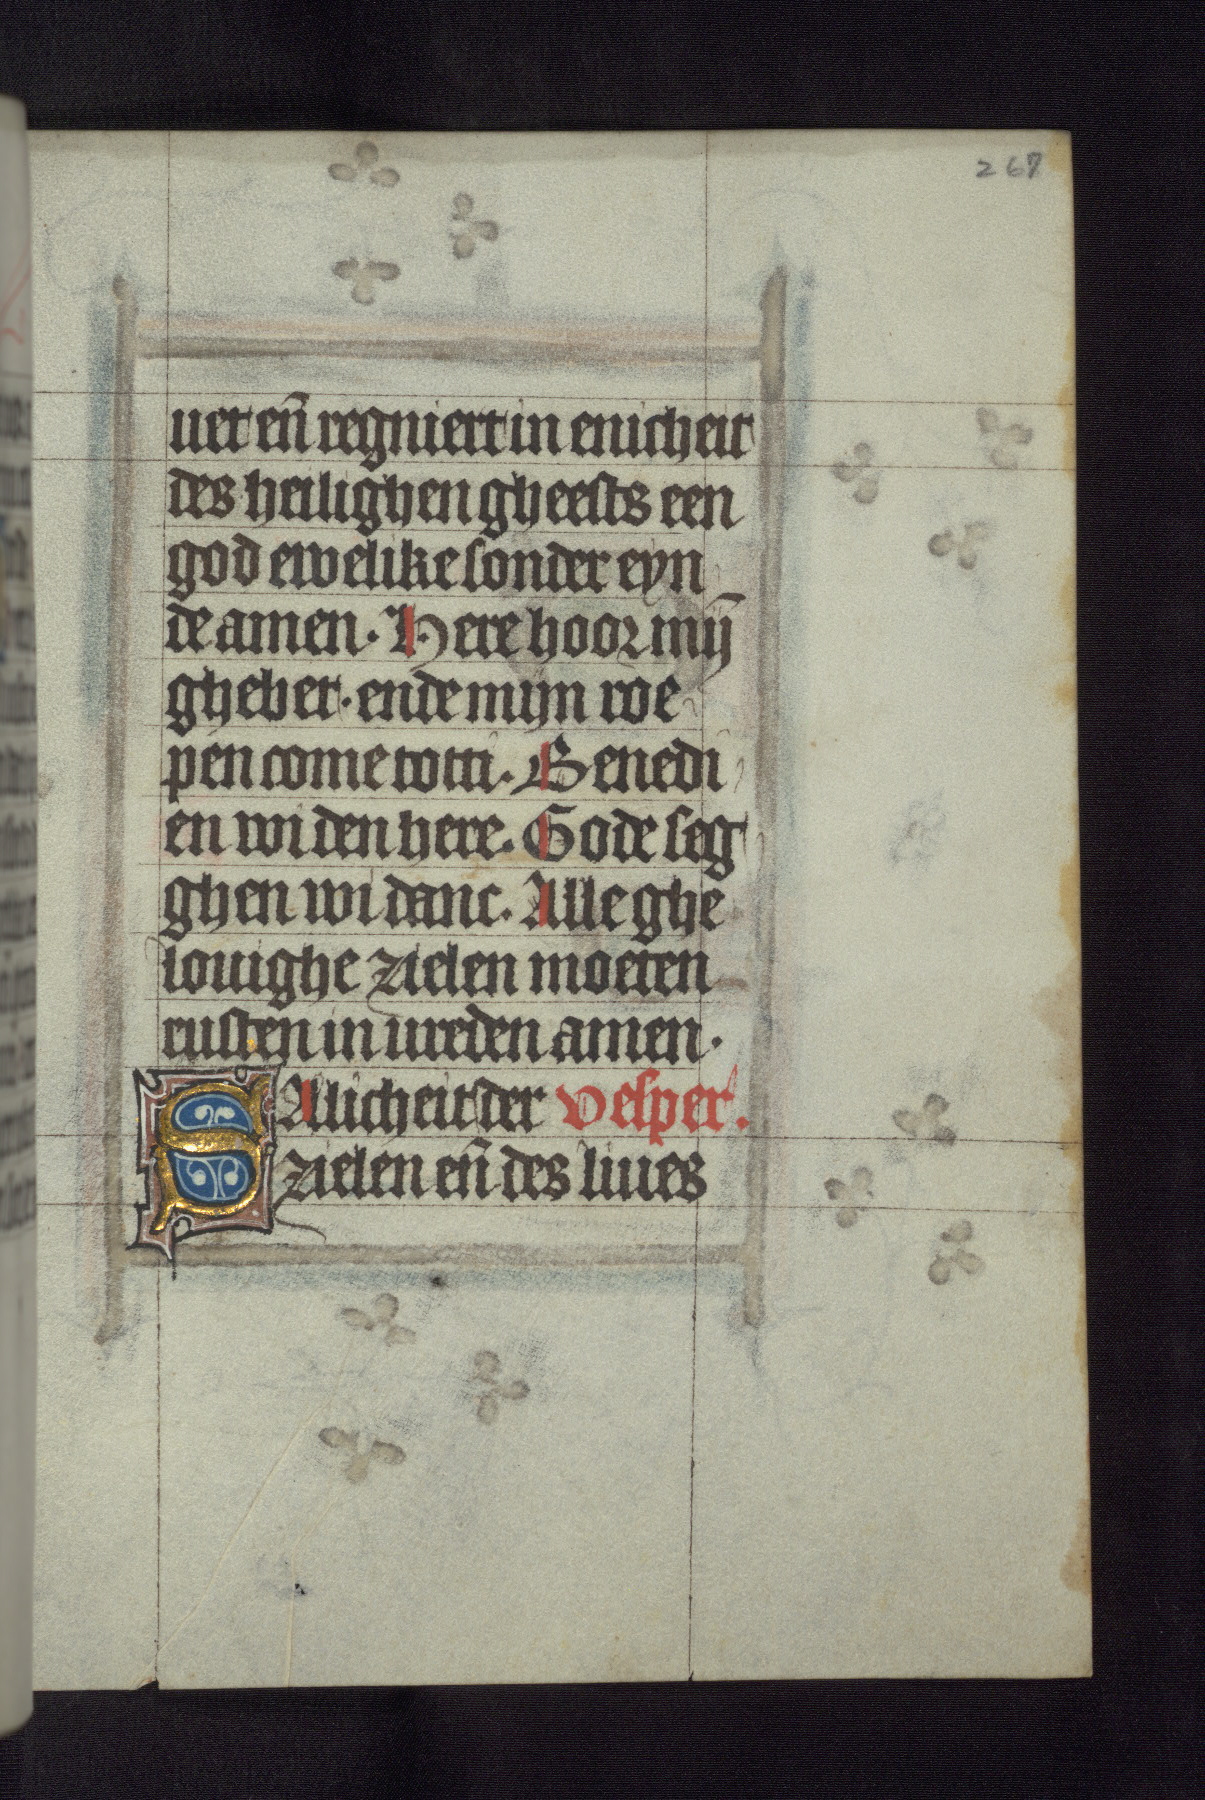 267
uet en̄ regniert in enicheit
des heilighen gheests een
god ewelike sonder eyn
de amen. Here hoor mij̄
ghebet. ende mijn roe
pen come totti. Benedi
en wi den here. Gode seg
ghen wi danc. Alle ghe
louighe zielen moeten
rusten in ureden amen.
SAlicheit der vesper.
zielen en̄ des liues